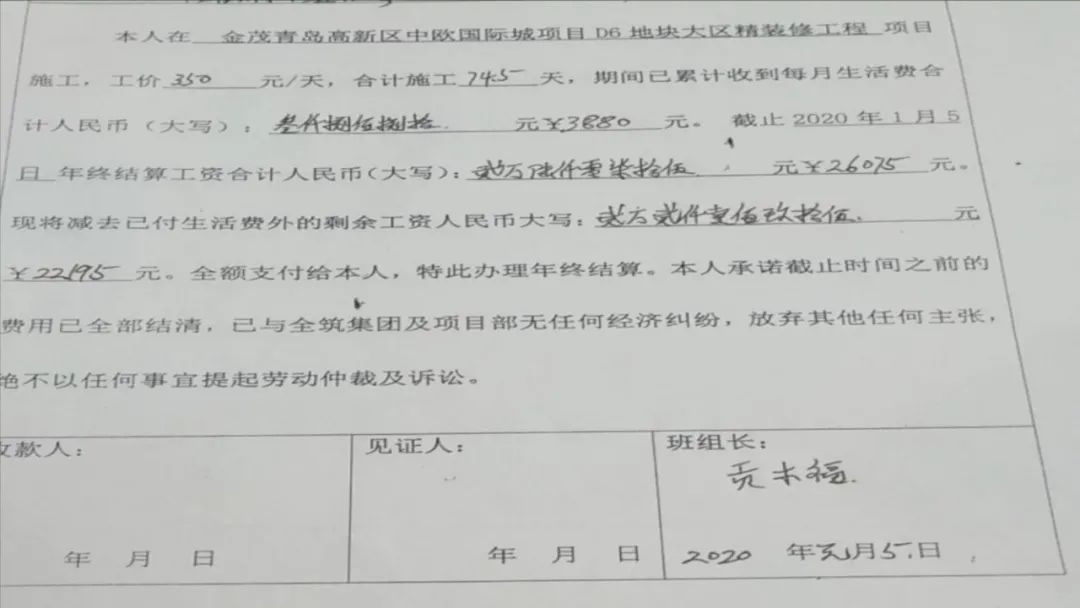 本人在 金茂青岛高新区中欧国际城项目 D6 地块大区精装修工程 项目
施工，工价 350 元/天，合计施工 74.5 天，期间已累计收到每月生活费合
计人民币（大写）：叁仟捌佰捌拾 元¥3880 元。截止 2020 年 1 月 5
日 年终结算工资合计人民币(大写)：贰万陆仟零柒拾伍 元¥26075 元。
现将减去已付生活费外的剩余工资人民币大写：贰万贰仟壹佰玖拾伍 元
¥22195 元。全额支付给本人，特此办理年终结算。本人承诺截止时间之前的
费用已全部结清，已与全筑集团及项目部无任何经济纠纷，放弃其他任何主张，
绝不以任何事宜提起劳动仲裁及诉讼。
收款人： 见证人： 班组长：
年 月 日 年 月 日 2020 年元月5日